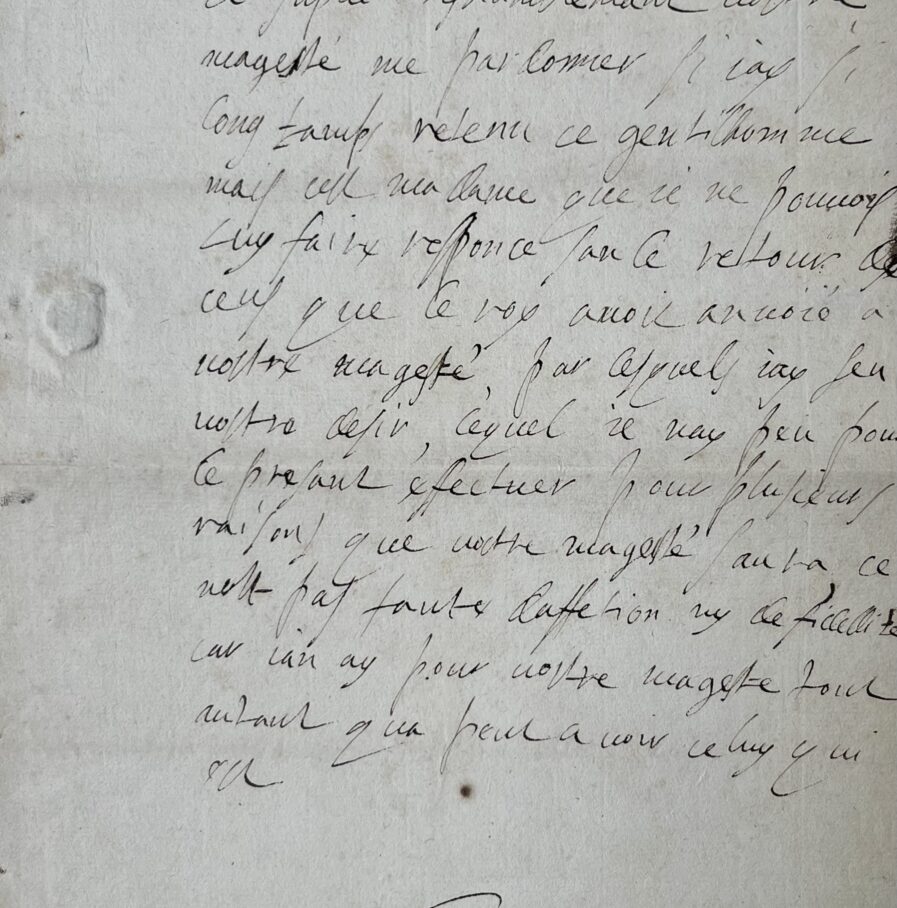 ie suplie treshumblement vostre
magesté me pardonner si iay si
long tamps retenu ce gentilhomme
mais cest madame que ie ne pouuois
luy faire responce san le retour de
ceus que le roy auoit anuoié a
vostre magesté, par lesquels iay seu
vostre desir, lequel ie nay peu pour
le presant effectuer pour plusieurs
raisons que vostre magesté saura, ce
nest pas faute daffetion ny de fidellite
car ian ay pour vostre mageste tout
autant qua peut auoir celuy qui
est